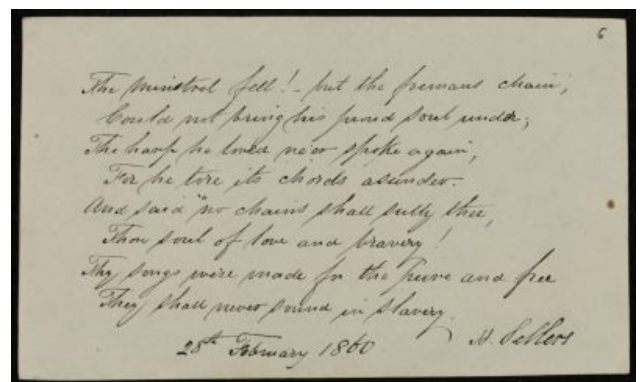 6
The Minstrel fell! - but the foemans chain,
Could not bring his proud soul under,
The harp he loved ne'er spoke again,
For he tore its chords asunder.
And said "no chains shall sully thee,
Thou soul of love and bravery!
Thy songs were made for the pure and free
They shall never sound in slavery.
28th February 1860 H. Sellers